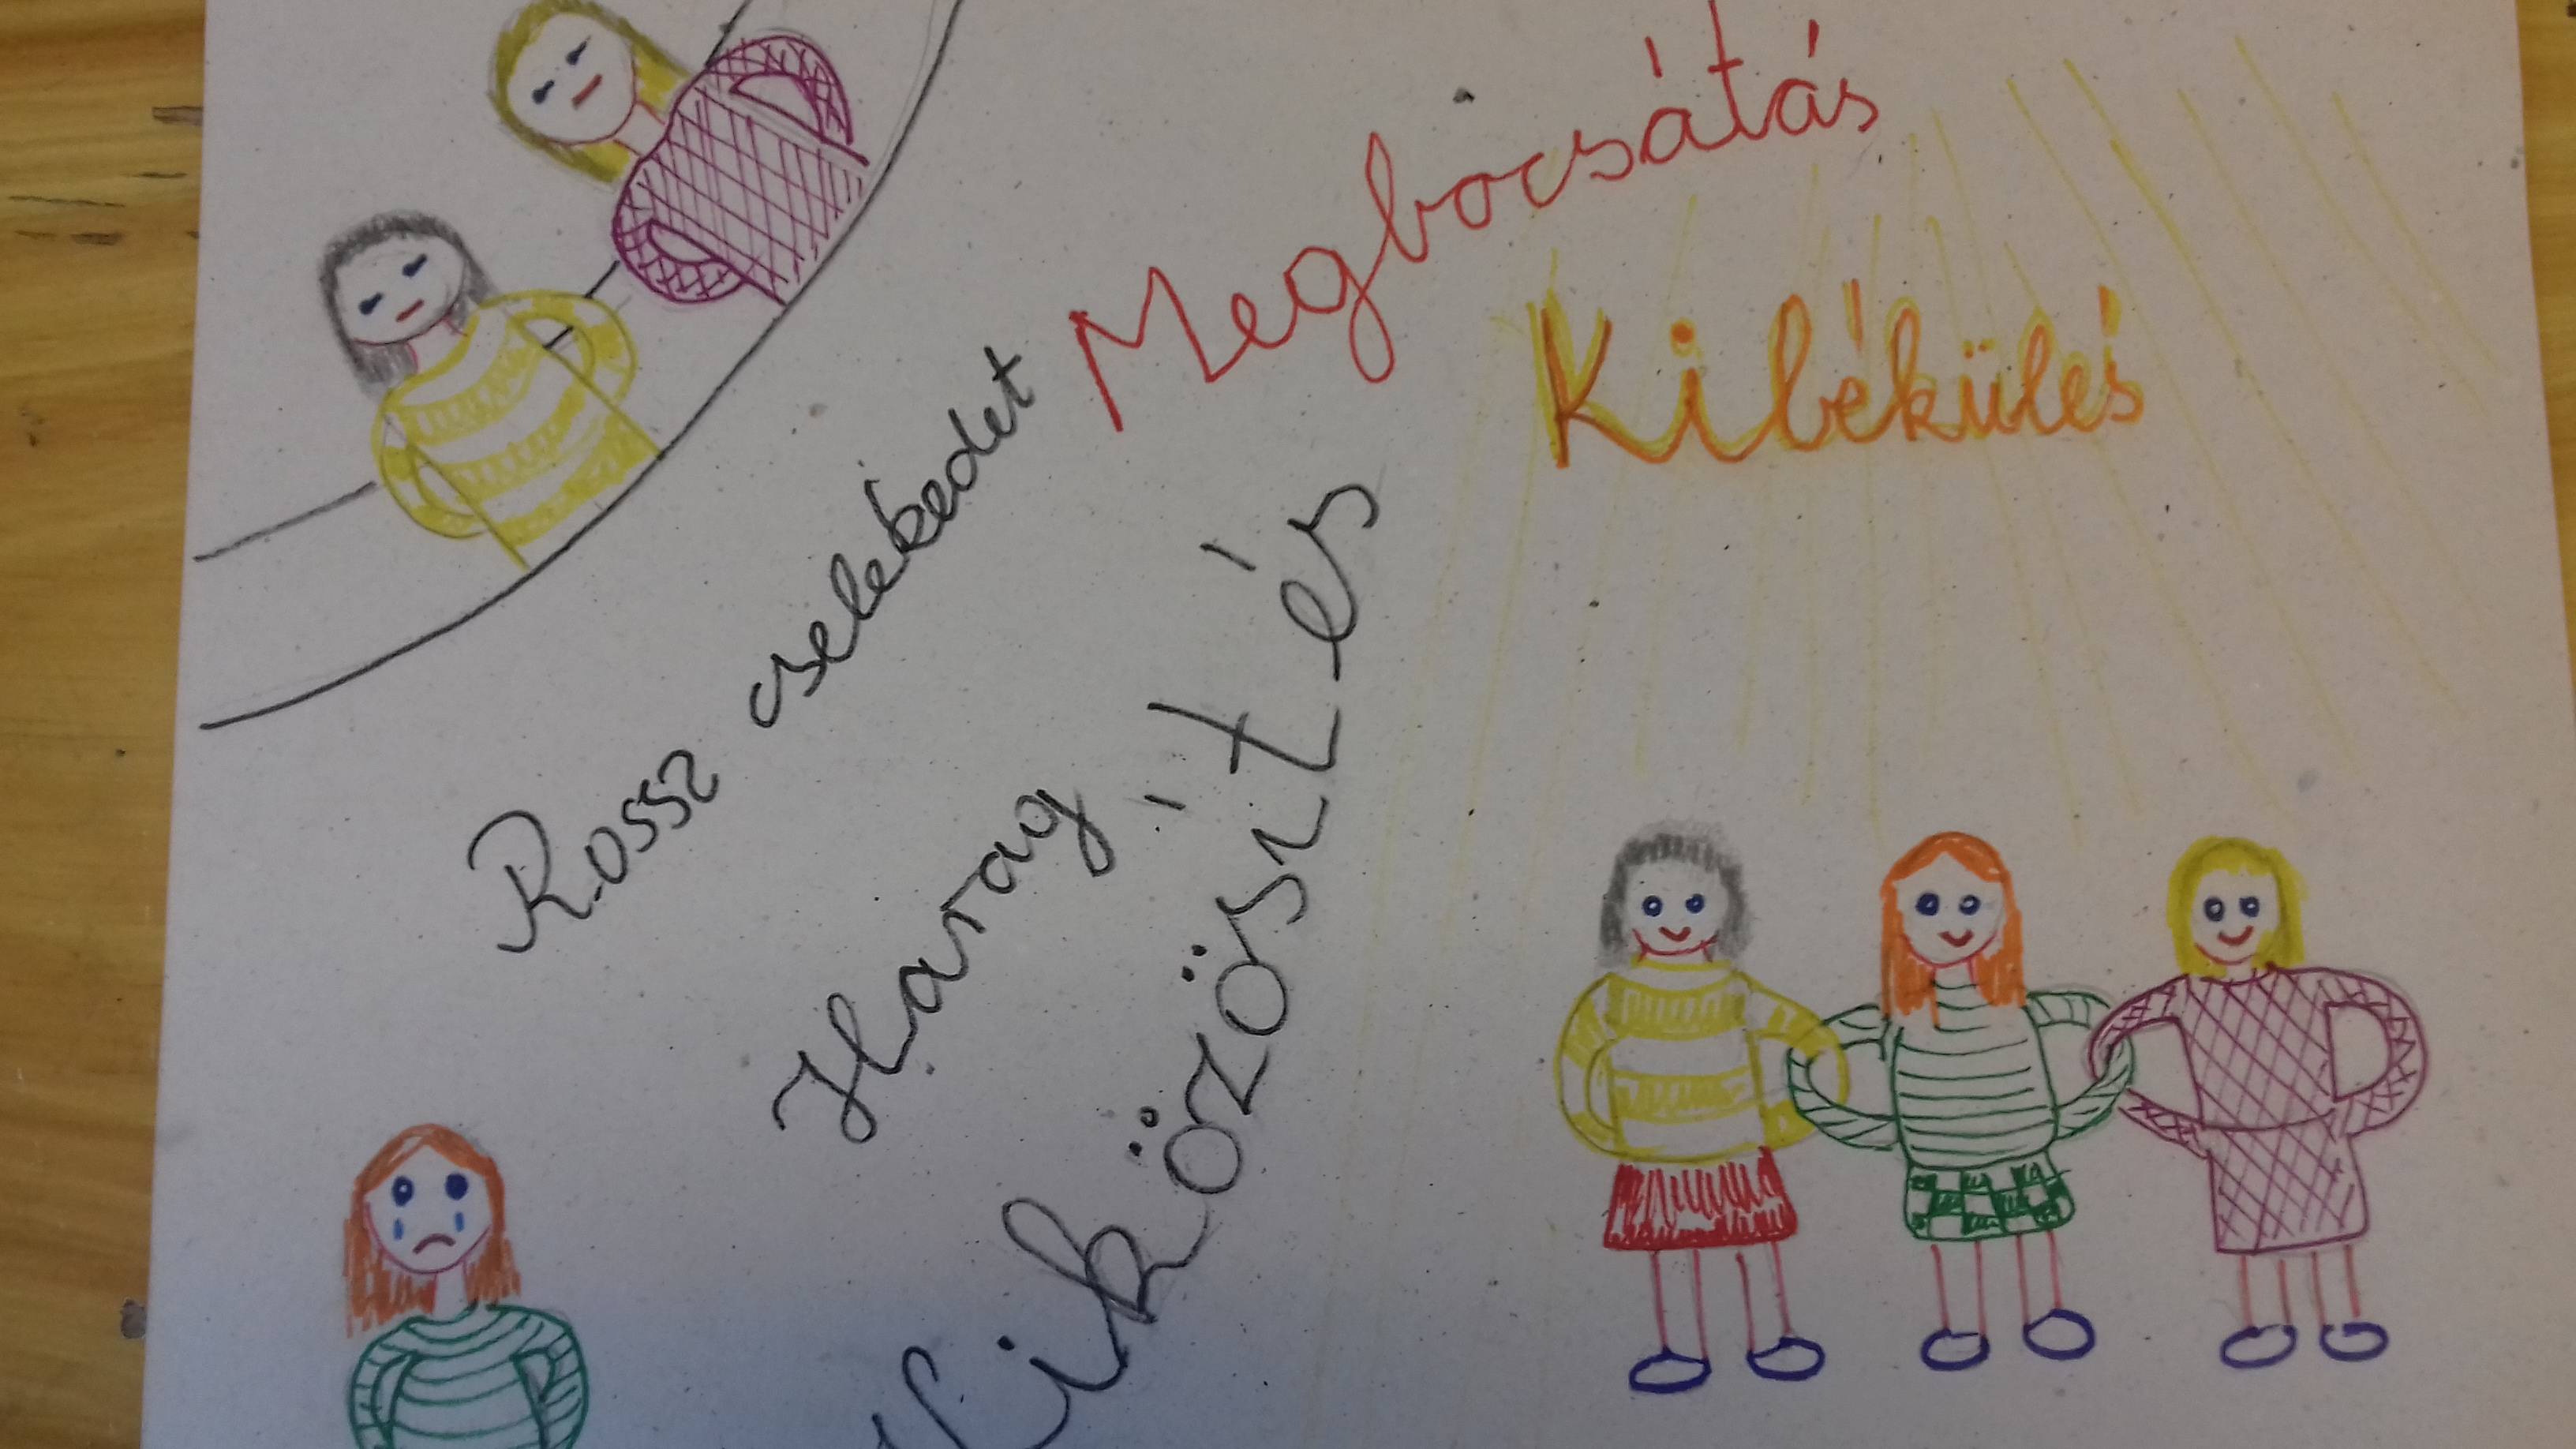 Megbocsátás
Kibékülés
Rossz cselekedet
Harag
Kiközösítés